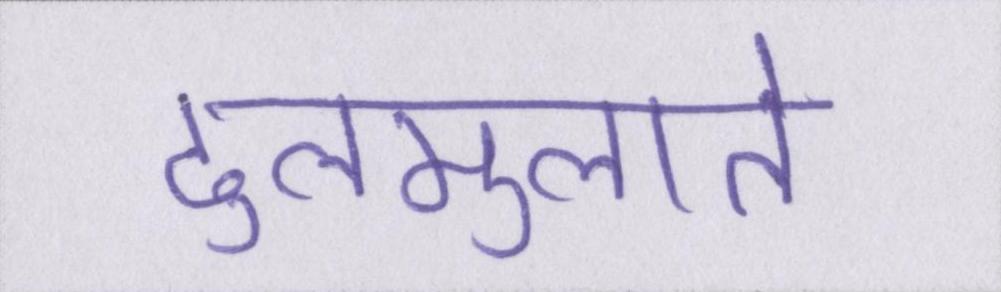 ढुलमुलाते